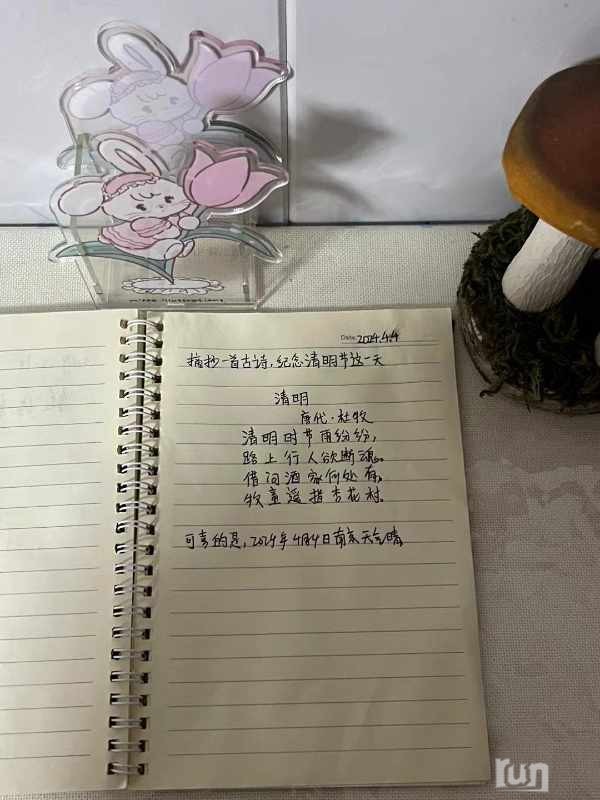 Date. 2024.4.4
摘抄一首古诗,纪念清明节这一天
清明
唐代·杜牧
清明时节雨纷纷,
路上行人欲断魂。
借问酒家何处有,
牧童遥指杏花村。
可喜的是,2024年4月4日南京天气晴。
run